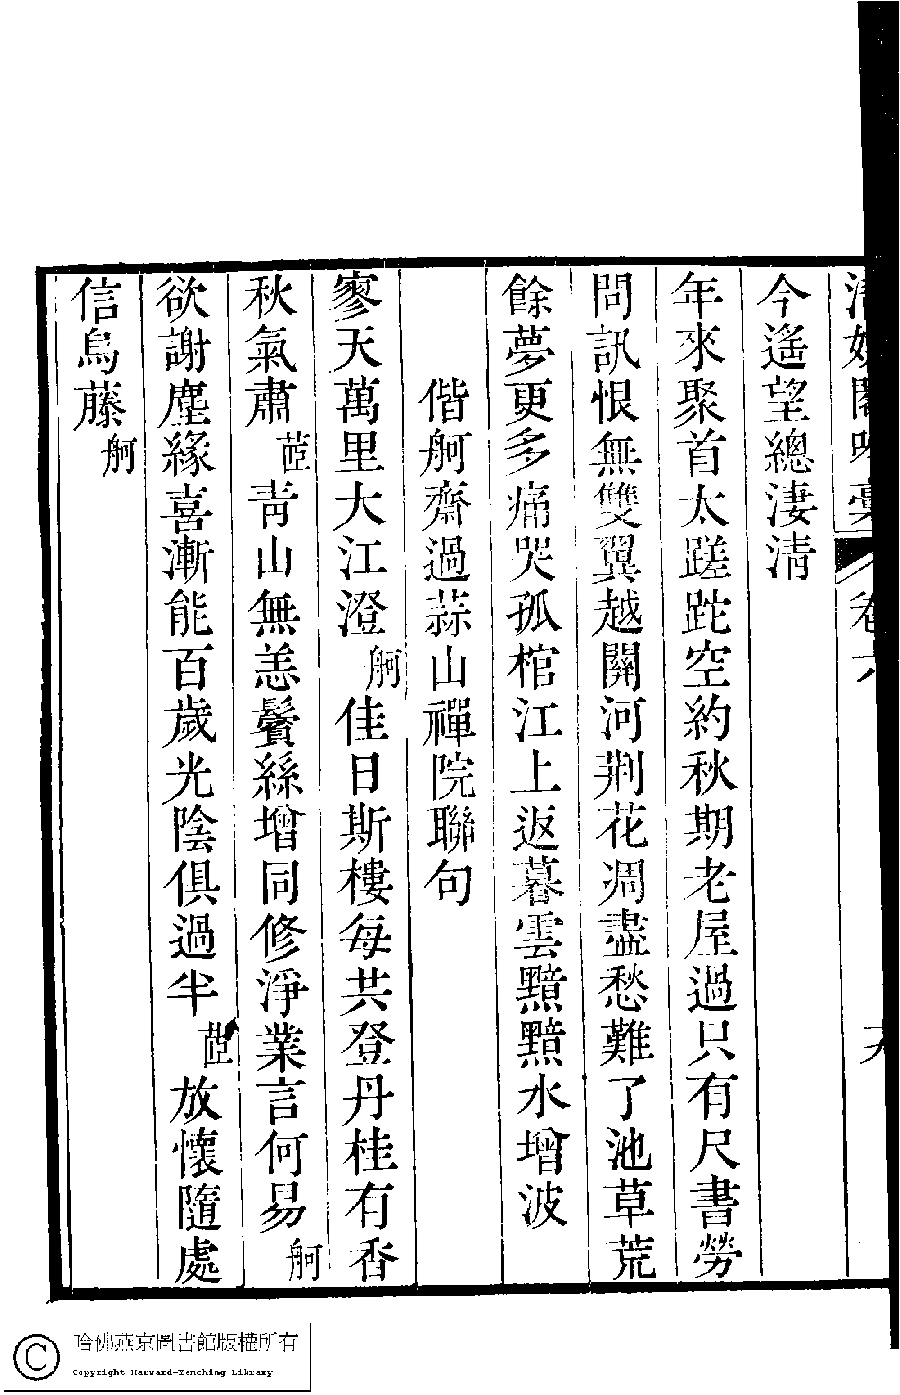 今遙望總淒清
年來聚首太蹉跎空約秋期老屋過只有尺書勞
問訊恨無雙翼越關河荆花凋盡愁難了池草荒
餘夢更多痛哭孤棺江上返暮雲黯黯水增波
偕舸齋過蒜山禪院聯句
寥天萬里大江澄舸佳日斯樓每共登丹桂有香
秋氣肅茝青山無恙鬢絲增同修淨業言何易舸
欲謝塵緣喜漸能百歲光陰俱過半茝放懷隨處
信烏藤舸
哈佛燕京圖書館版權所有
Copyright Harvard-Yenching Library